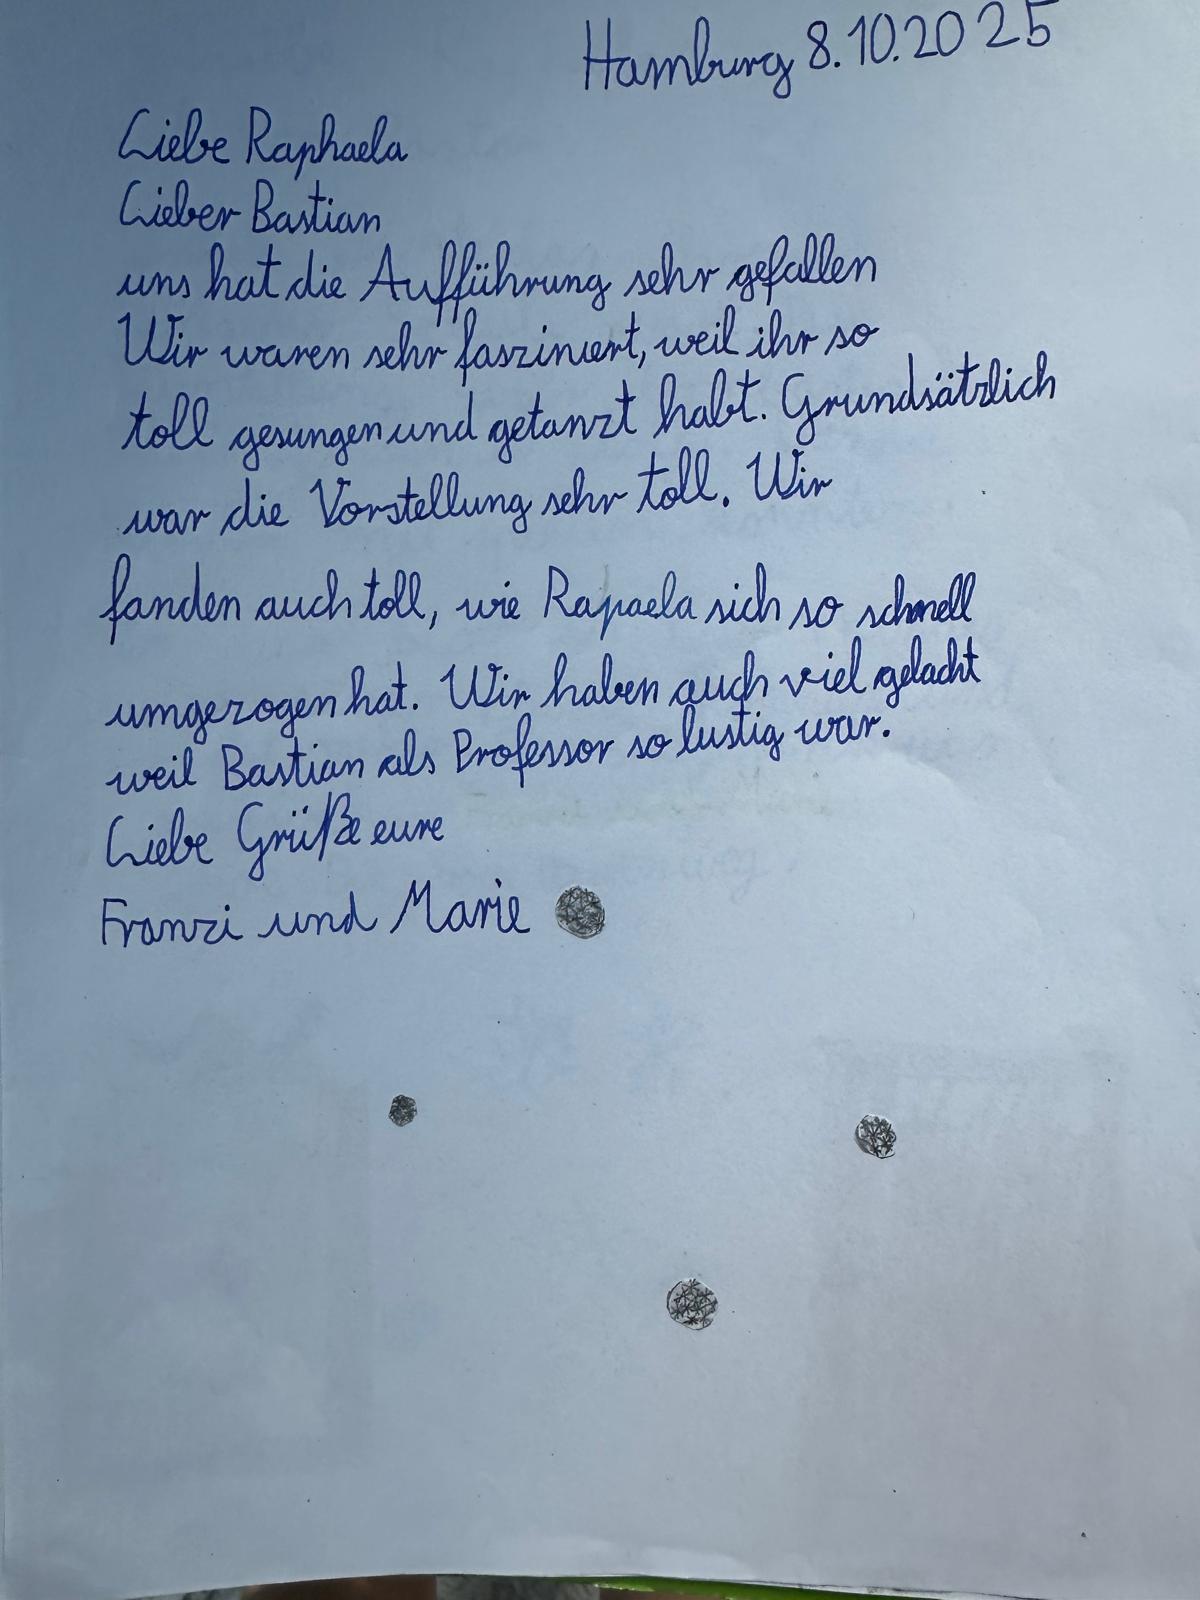 Hamburg 8.10.2025
Liebe Raphaela
Lieber Bastian
uns hat die Aufführung sehr gefallen
Wir waren sehr fasziniert, weil ihr so
toll gesungen und getanzt habt. Grundsätzlich
war die Vorstellung sehr toll. Wir
fanden auch toll, wie Rapaela sich so schnell
umgezogen hat. Wir haben auch viel gelacht
weil Bastian als Professor so lustig war.
Liebe Grüße eure
Franzi und Marie